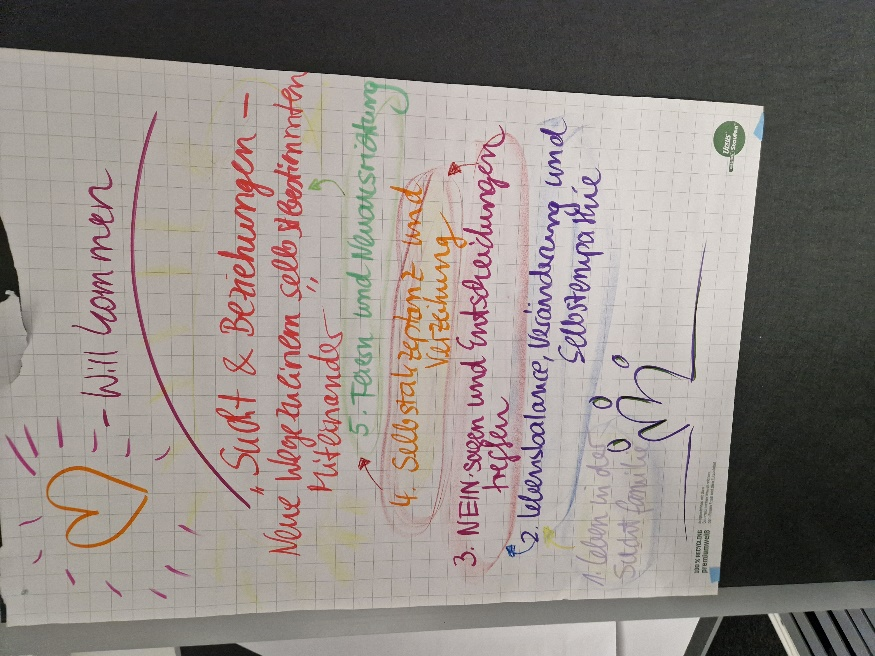 Willkommen
„Sucht & Beziehungen –
Neue Wege zu einem selbstbestimmten
Miteinander"
5. Feiern und Neuausrichtung
4. Selbstakzeptanz und
Verzeihung
3. NEIN-sagen und Entscheidungen
treffen
2. Lebensbalance, Veränderung und
Selbstempathie
1. Leben in der
Suchtfamilie
100% RECYCLING
premiumweiß